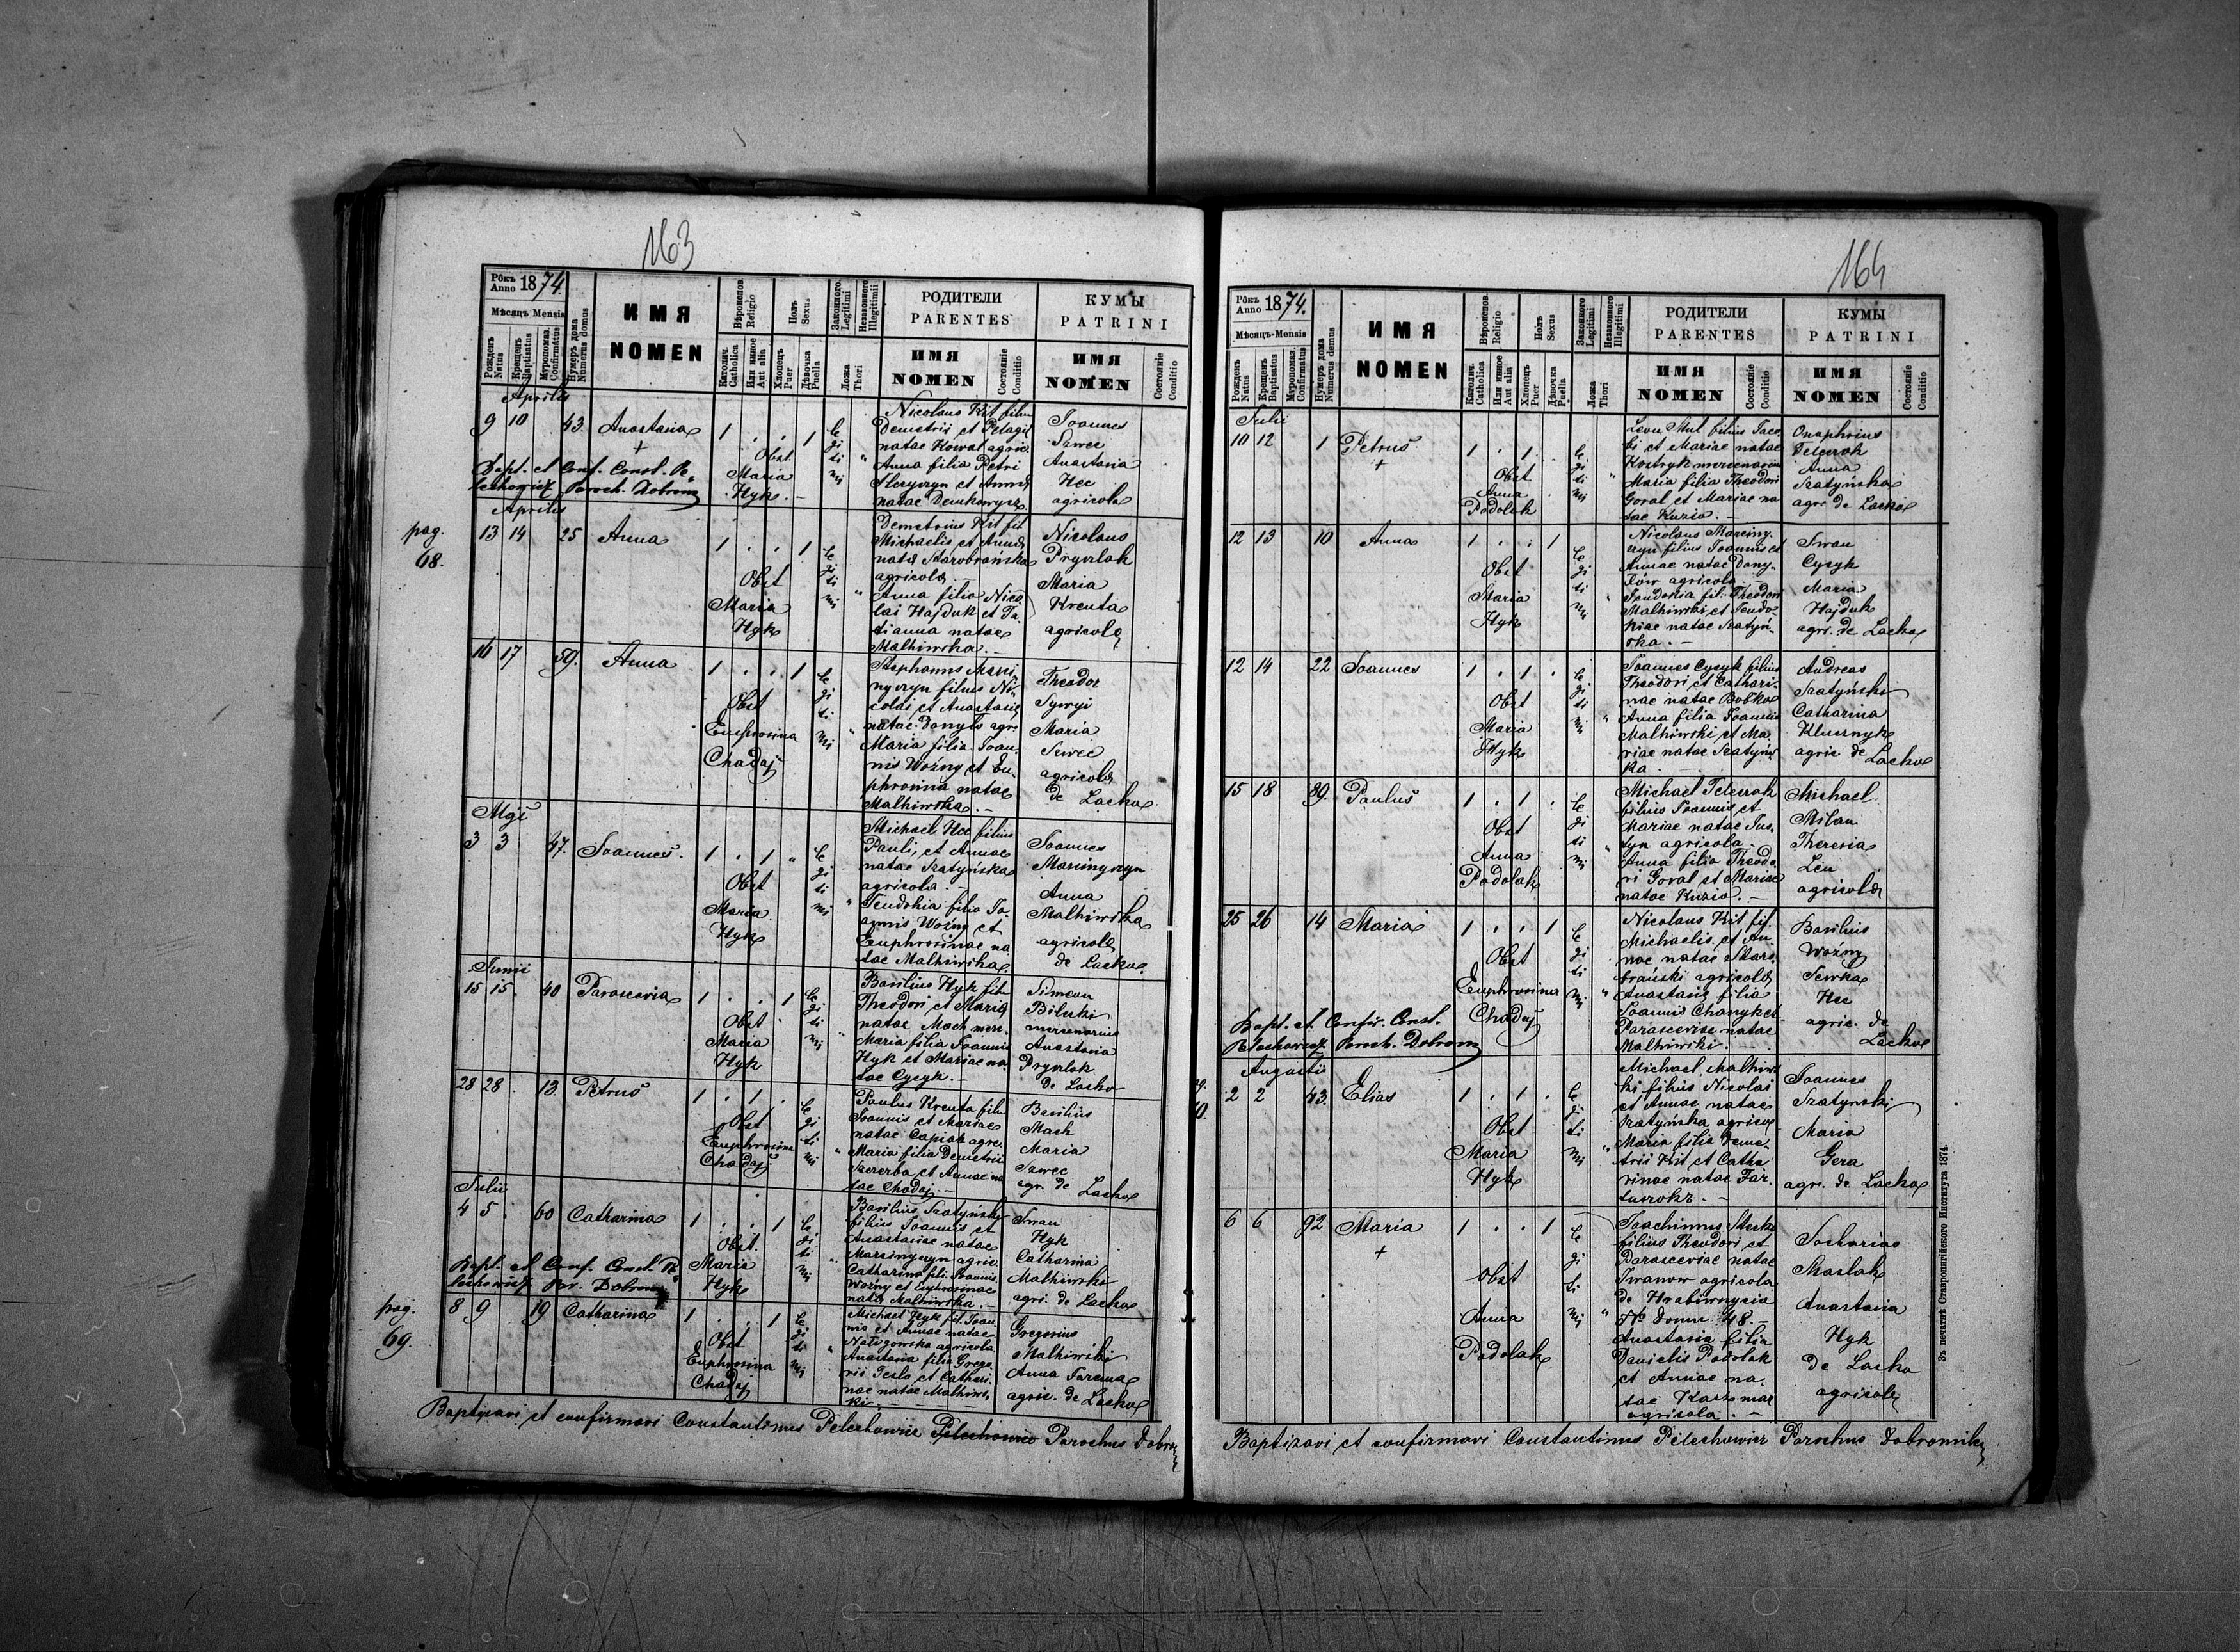 163
Рôкъ
Anno 1874.
Мѣсяцъ Mensis
Рожденъ
Natus
Крещенъ
Baptisatus
Муропомаз.
Confirmatus
Нумеръ дома
Numerus domus
ИМЯ
NOMEN
Вѣроиспов.
Religio
Католич.
Catholica
Или инное
Aut alia
Полъ
Sexus
Хлопецъ
Puer
Дѣвочка
Puella
Законного
Legitimi
Незаконного
Illegitimi
Ложа
Thori
РОДИТЕЛИ
PARENTES
ИМЯ
NOMEN
Состояніе
Conditio
КУМЫ
PATRINI
ИМЯ
NOMEN
Состояніе
Conditio
Aprilis
9 10 43 Anastasia 1 . . 1
+
Bapt. et Conf. Const. Pe
lechowicz Paroch. Dobrom
Obst.
Maria
Hyk. -
le
gi
ti
mi
Nicolaus Kit filius
Demetrii et Pelagiæ
natae Kowal agric.
Anna filia Petri
et Annæ
natae
Joannes
Szwec
Anastasia
Hec
agricola
Aprilis
pag.
68.
13 14 25 Anna 1 . . 1
Obst
Maria
Hyk
le
gi
ti
mi
Demetrius Kit fil
Michaelis et Annæ
natæ Starobrańska
agricola
Anna filia Nico
lai Hajduk et Ta
tianna natae
Malhiwska. -
Nicolaus
Pryzlak
Maria
Kreuta
agricolæ
16 17 59. Anna 1 . . 1
Obst
Euphrosina
Chadaj
le
gi
ti
mi
Stephanus Marci
nyszyn filius Ni
colai et Anastasiæ
natae Danyło agr.
Maria filia Joan
nis Woźny et Eu
phrosina natae
Malhiwska. -
Theodor
Maria
Szwec
agricolæ
de Lacko
Maji
3 3 47. Joannes. 1 . 1
Obst
Maria
Hyk
le
gi
ti
mi
Michael Hec filius
Pauli, et Annae
natae Szatyńska
agricola. -
Teudokia filia Jo
annis Woźny et
Euphrosinae na
tae Malhiwska
Joannes
Marcinyszyn
Anna
Malhiwska
agricolæ
de Lacko
Junii
15 15 40 Parascevia 1 . . 1
Obst
Maria
Hyk
le
gi
ti
mi
Basilius Hyk fil
Theodori, et Mariæ
natae Mach merc.
Maria filia Joannis
Hyk et Mariae na
tae Cycyk. -
Simeon
Bilecki
mercenarius
Anastasia
Pryzlak
de Lacko
28 28 13. Petrus 1 . 1 .
Obst
Euphrosina
Chadaj
le
gi
ti
mi
Paulus Kreuta fil.
Joannis et Mariae
natae Capiak agr.
Maria filia Demetrii
Szczerba et Annae na
tae Chadaj -
Basilius
Mach
Maria
Szwec
agr. de Lacko
Julii
4 5 60 Catharina 1 . . 1
Bapt. et Conf. Const. Pe
lechowicz Par. Dobrom
Obst.
Maria
Hyk
le
gi
ti
mi
Basilius Szatyński
filius Joannis et
Anastasiae natae
Marcinyszyn agric.
Catharina fil. Joannis
Woźny et Euphrosinae
natæ Malhiwska. -
Iwan
Hyk
Catharina
Malhiwska
agr. de Lacko
pag.
69.
8 9 19 Catharina 1 . . 1
Obst
Euphrosina
Chadaj
le
gi
ti
mi
Michael Hyk fil. Joan
nis et Annae natae
agricola.
Anastasia filia Grego
rii Teslo et Cathari
nae natae Malhiws
ki. -
Gregorius
Malhiwski
Anna
agric. de Lacko
Baptizavi et confirmavi Constantinus Pelechowicz Pelechowicz Parochus Dobrom
164
Рôкъ
Anno 1874.
Мѣсяцъ-Mensis
Рожденъ
Natus
Крещенъ
Baptisatus
Муропомаз.
Confirmatus
Нумеръ дома
Numerus domus
ИМЯ
NOMEN
Вѣроиспов.
Religio
Католич.
Catholica
Или инное
Aut alia
Полъ
Sexus
Хлопецъ
Puer
Дѣвочка
Puella
Законного
Legitimi
Незаконного
Illegitimi
Ложа
Thori
РОДИТЕЛИ
PARENTES
ИМЯ
NOMEN
Состояніе
Conditio
КУМЫ
PATRINI
ИМЯ
NOMEN
Состояніе
Conditio
Julii
10 12 1 Petrus 1 . 1 .
+
Obst
Anna
Podolak
le
gi
ti
mi
Leon Mul filius Jaco
bi et Mariae natae
Kostryk mercenarius
Maria filia Theodori
Goral et Mariae na
tae Kuzio. -
Onuphrius
Telezrak
Anna
Szatyńska
agr. de Lacko
12 13 10 Anna 1 . . 1
Obst
Maria
Hyk
le
gi
ti
mi
Nicolaus Marciny
szyn filius Joannis et
Annae natae Dany
łów agricola. -
Teudokia fil. Theodori
Malhiwski et Teudo
kiae natae Szatyń
ska. -
Iwan
Cycyk
Maria
Hajduk
agr. de Lacko
12 14 22 Joannes 1 . 1 .
Obst
Maria
Hyk
le
gi
ti
mi
Joannes Cycyk filius
Theodori et Cathari
nae natae Bobko
Anna filia Joannis
Malhiwski et Ma
riae natae Szatyńs
ka
Andreas
Szatyński
Catharina
Klucznyk
agric de Lacko
15 18 89. Paulus 1 . 1 .
Obst
Anna
Podolak
le
gi
ti
mi
Michael Telezrak
filius Joannis et
Mariae natae Jus
tyn agricola.
Anna filia Theodo
ri Goral et Mariae
natae Kuzio. -
Michael
Milan
Theresia
Leu
agricolæ
25 26 14 Maria 1 . . 1
Obst
Euphrosina
Chadaj
Bapt. et Confir. Const.
Pelechowicz Paroch. Dobrom
le
gi
ti
mi
Nicolaus Kit fil.
Michaelis et An
nae natae Staro
brański agricolæ
Anastasiæ filia
Joannis Chanyk et
Parasceviae natae
Malhiwski. -
Basilius
Woźny
Sewka
Hec
agric. de
Lacko
Augusti
2 2 43. Elias 1 . 1 .
Obst
Maria
Hyk
le
gi
ti
mi
Michael Malhiws
ki filius Nicolai
et Annae natae
Szatyńska agricola
Maria filia Deme
trii Kit et Catha
rinae natae Far
tuszok. -
Joannes
Szatynski
Maria
Gera
agr. de Lacko
6 6 92 Maria 1 . . 1
+
Obst
Anna
Podolak
le
gi
ti
mi
Joachimus Stecko
filius Theodori et
Parasceviae natae
Iwanow agricola
de Hrabiwnycia
No Domu 48. -
Anastasia filia
Danielis Podolak
et Annae na
tae Kaczmar
agricola. -
Zacharias
Maslak
Anastasia
Hyk
de Lacko
agricolæ
Baptizavi et confirmavi Constantinus Pelechowicz Parochus Dobromil
Зъ печатнѣ Ставропигійского Института 1874.